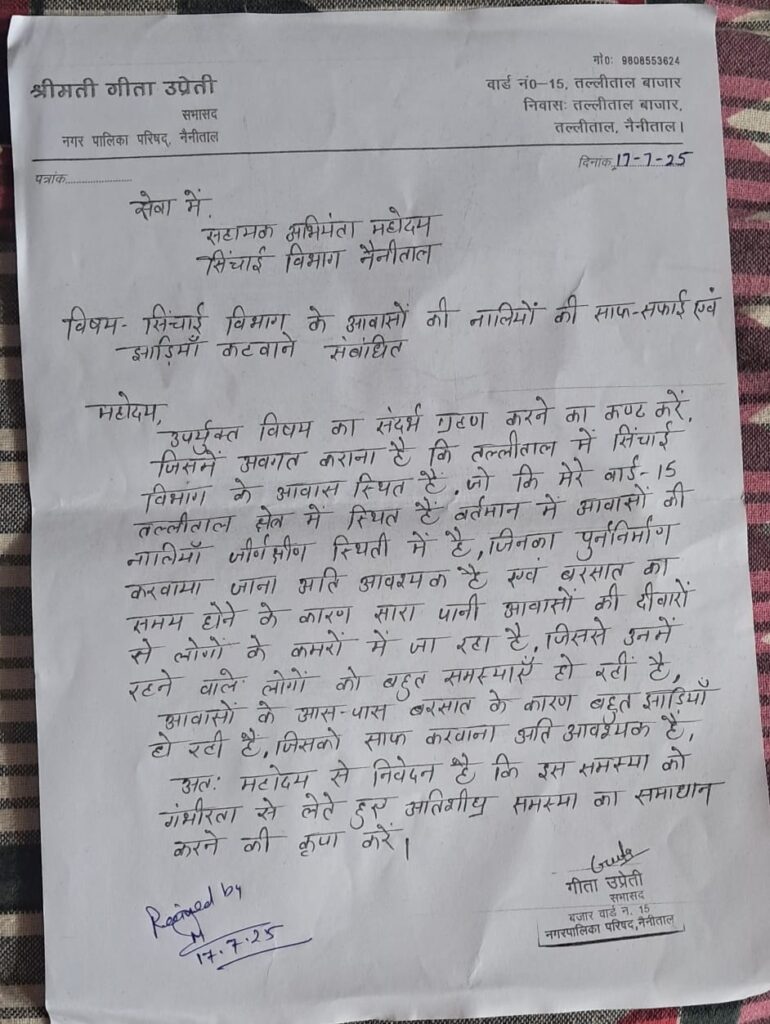 मो0: 9808553624
श्रीमती गीता उप्रेती
सभासद
नगर पालिका परिषद्, नैनीताल
वार्ड नं0–15, तल्लीताल बाजार
निवासः तल्लीताल बाजार,
तल्लीताल, नैनीताल।
पत्रांक......................
दिनांक, 17-7-25
सेवा में,
सहायक अभियंता महोदय
सिंचाई विभाग नैनीताल
विषय- सिंचाई विभाग के आवासों की नालियों की साफ-सफाई एवं
झाड़ियाँ कटवाने संबंधित
महोदय,
उपर्युक्त विषय का संदर्भ ग्रहण करने का कष्ट करें,
जिसमें अवगत कराना है कि तल्लीताल में सिंचाई
विभाग के आवास स्थित हैं, जो कि मेरे वार्ड-15
तल्लीताल क्षेत्र में स्थित हैं वर्तमान में आवासों की
नालियाँ जीर्णक्षीण स्थिती में है, जिनका पुर्ननिर्माण
करवाया जाना अति आवश्यक है एवं बरसात का
समय होने के कारण सारा पानी आवासों की दीवारों
से लोगों के कमरों में जा रहा है, जिससे उनमें
रहने वाले लोगों को बहुत समस्याएँ हो रहीं है,
आवासों के आस-पास बरसात के कारण बहुत झाड़ियाँ
हो रही है, जिसको साफ करवाना अति आवश्यक है,
अतः महोदय से निवेदन है कि इस समस्या को
गंभीरता से लेते हुए अतिशीघ्र समस्या का समाधान
करने की कृपा करें।
गीता उप्रेती
सभासद
बजार वार्ड न. 15
नगरपालिका परिषद, नैनीताल
Received by
17.7.25